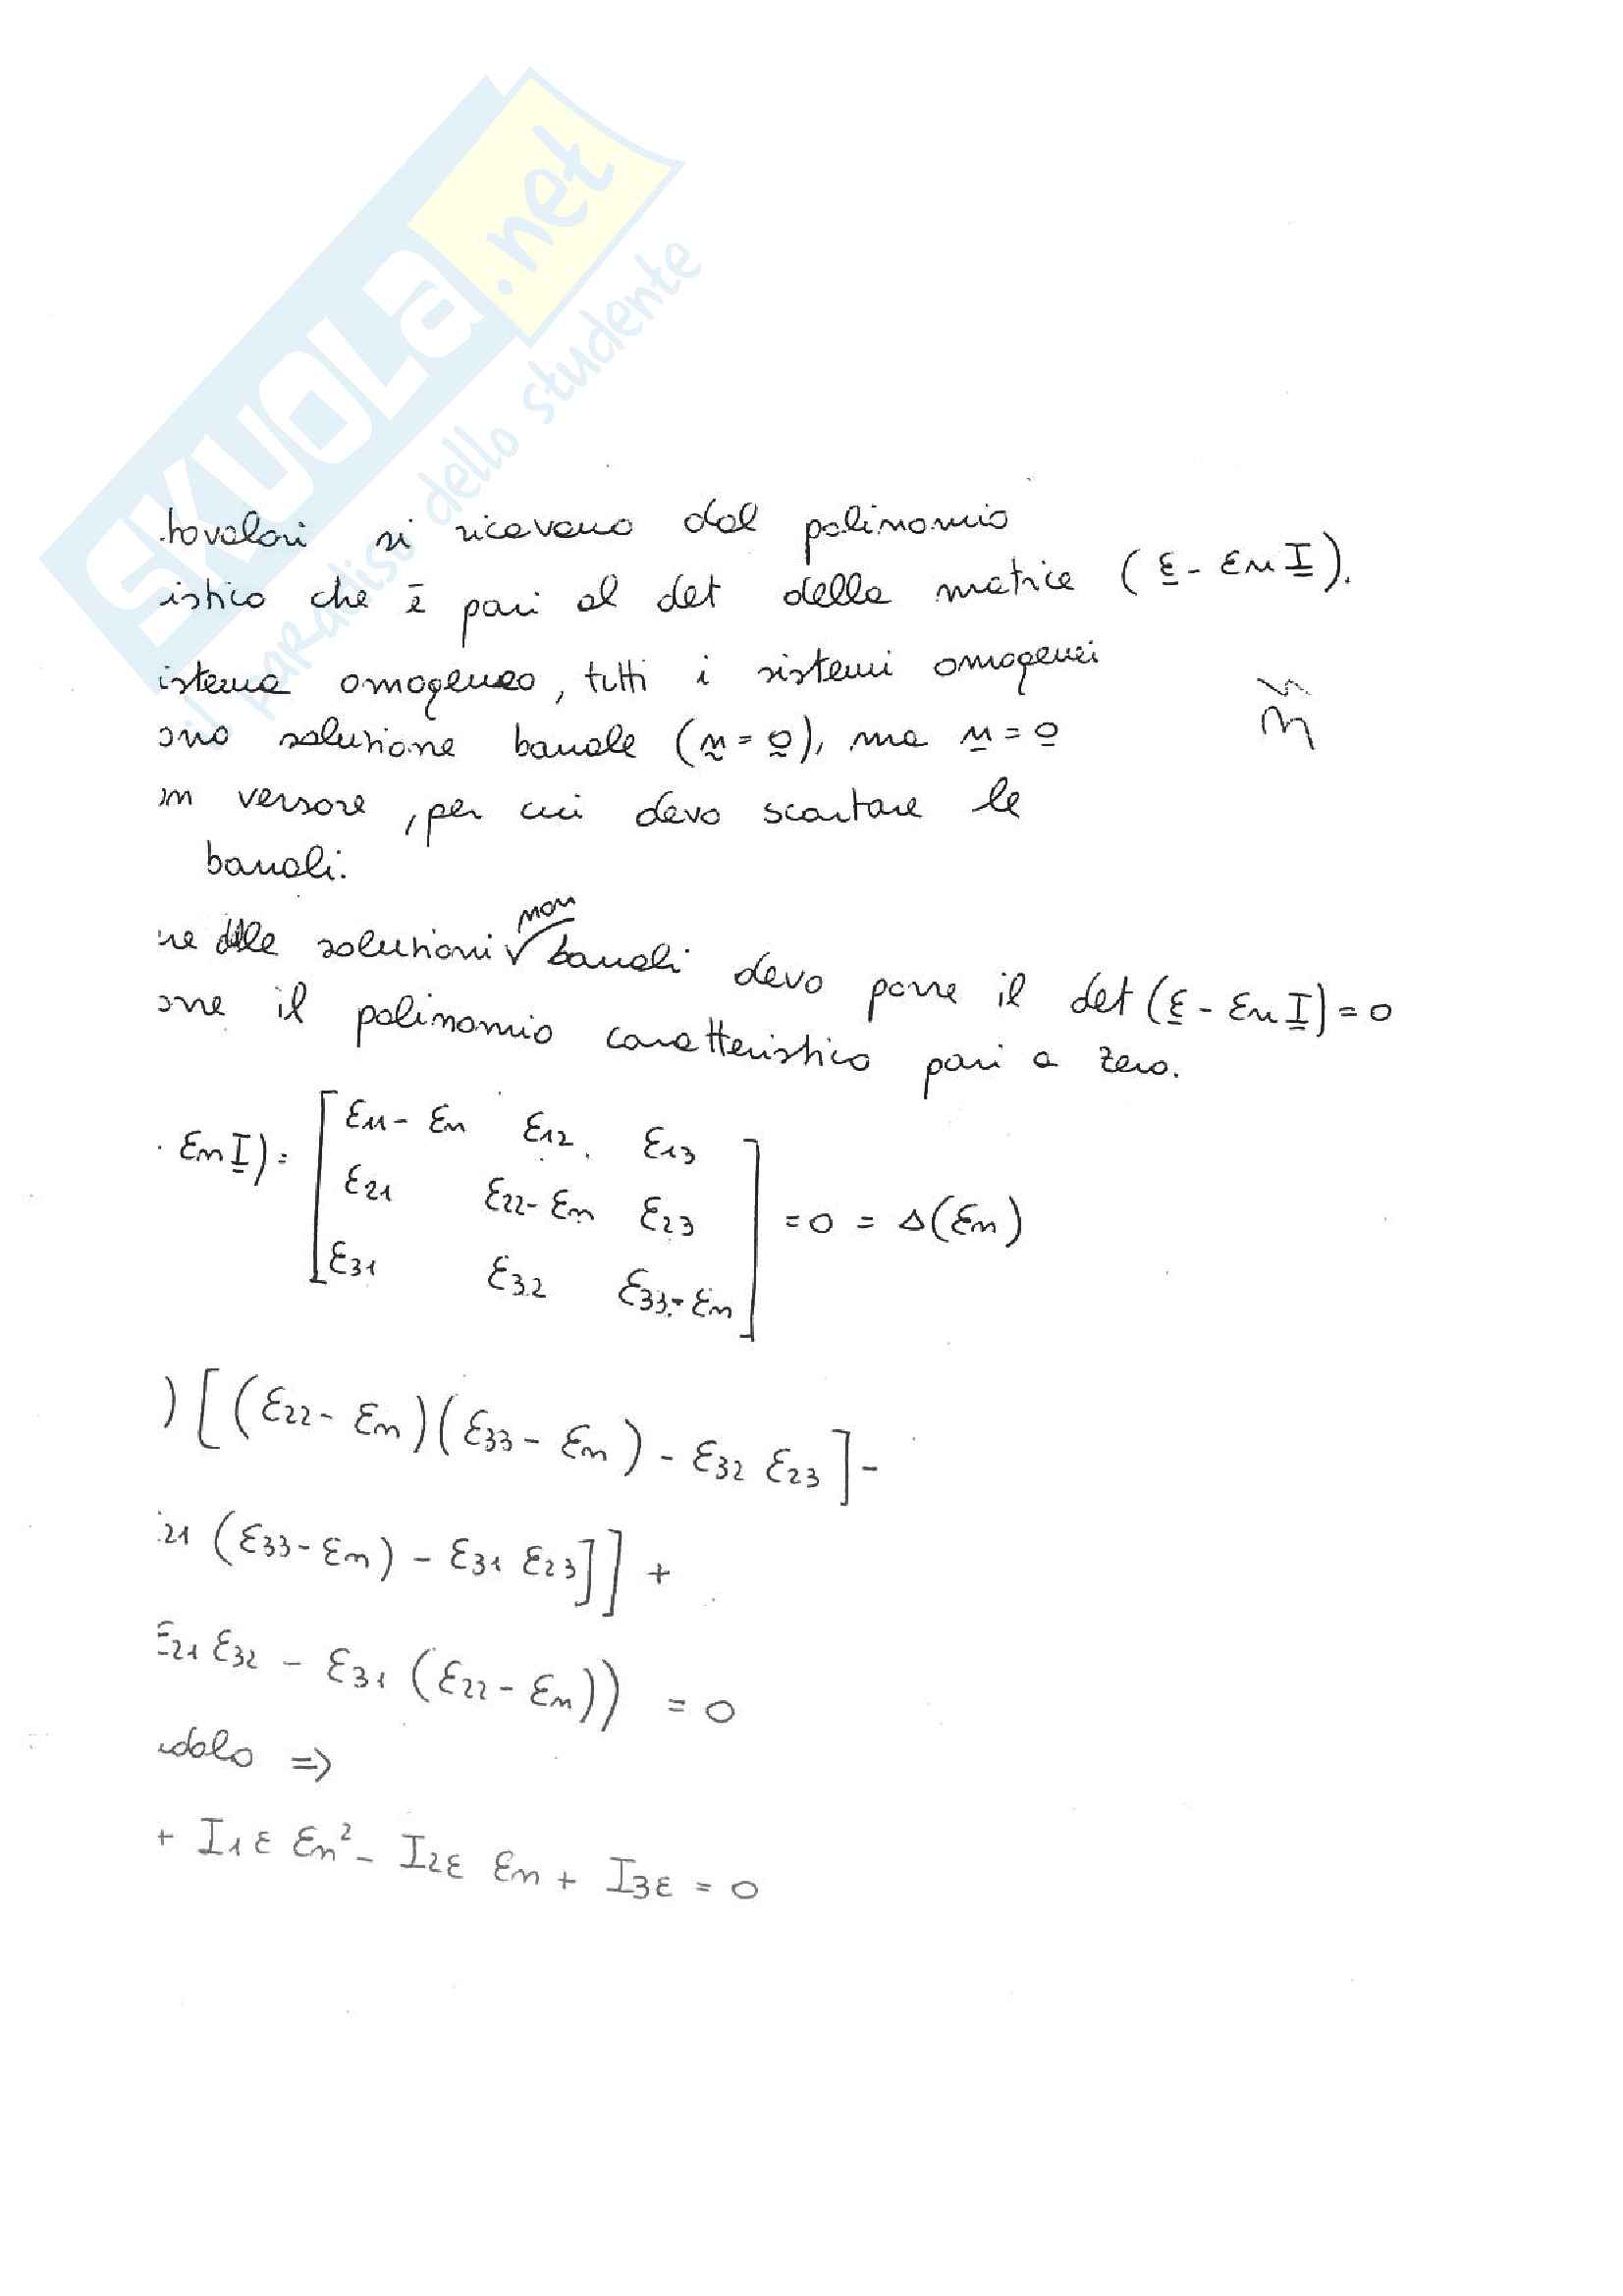 SKUOLA.net
il paradiso dello studente
.tovalori si ricavano dal polinomio
istico che è pari al det della matrice (ε - εn I).
istema omogeneo, tutti i sistemi omogenei
ono soluzione banale (n = 0), ma n = 0
un versore, per cui devo scartare le
banali.
re delle soluzioni non banali devo porre il det (ε - εn I) = 0
orre il polinomio caratteristico pari a zero.
εn I) = [ε11 - εn ε12 ε13
ε21 ε22 - εn ε23
ε31 ε32 ε33 - εn] = 0 = Δ(εn)
) [(ε22 - εn)(ε33 - εn) - ε32 ε23] -
21 (ε33 - εn) - ε31 ε23]] +
ε21 ε32 - ε31 (ε22 - εn)) = 0
ndolo ⇒
+ I1ε εn² - I2ε εn + I3ε = 0